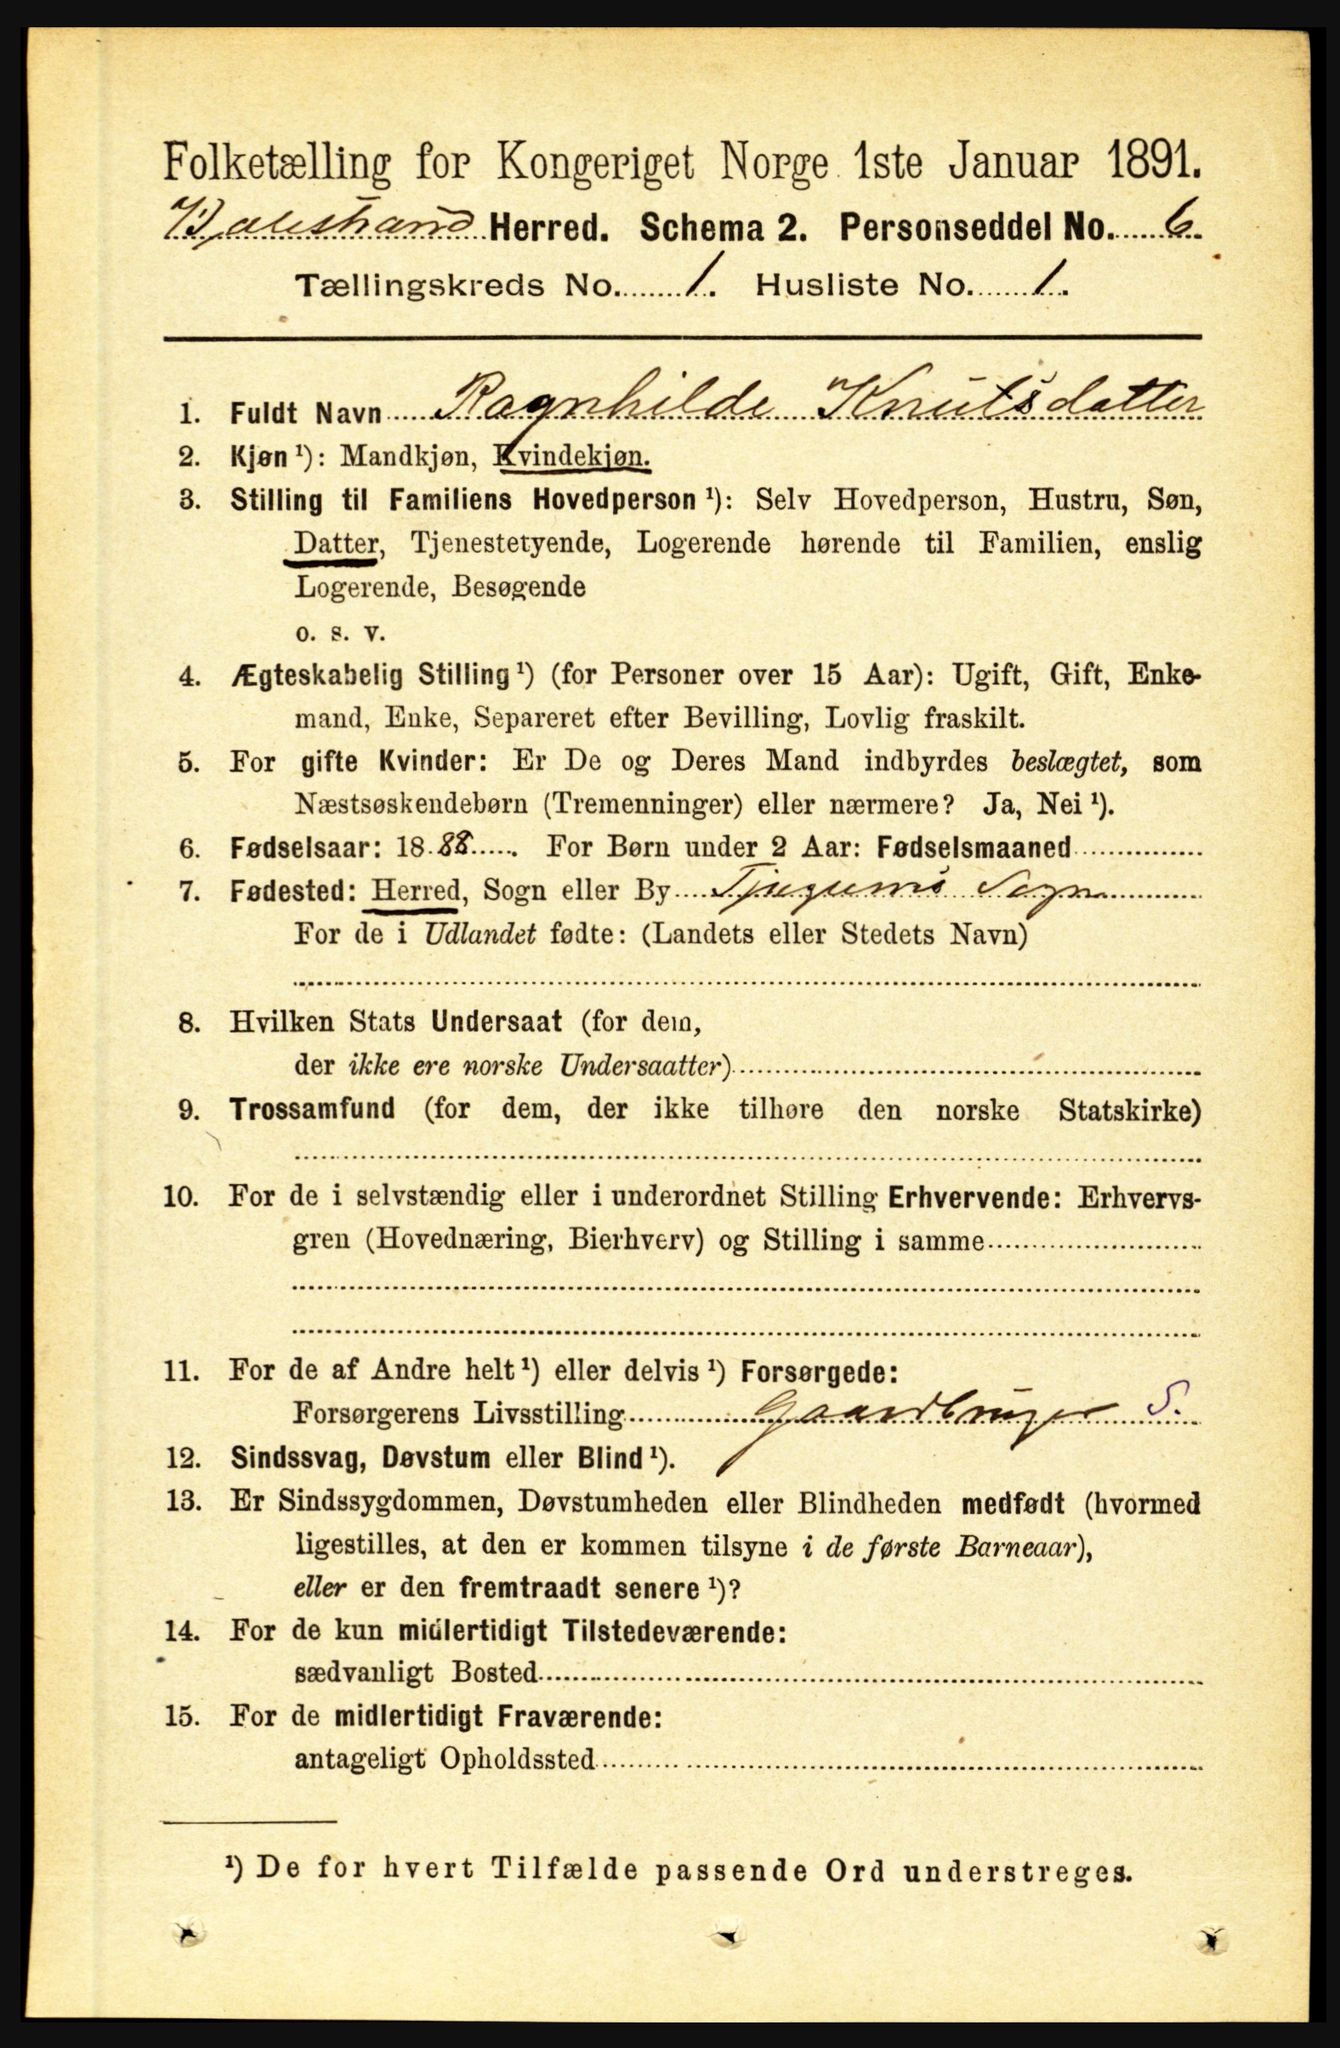 Folketælling for Kongeriget Norge 1ste Januar 1891.
Balestrand Herred. Schema 2. Personseddel No. 6.
Tællingskreds No. 1. Husliste No. 1.
1. Fuldt Navn Ragnhilde Knutsdatter
2. Kjøn¹): Mandkjøn, Kvindekjøn.
3. Stilling til Familiens Hovedperson¹): Selv Hovedperson, Hustru, Søn,
Datter, Tjenestetyende, Logerende hørende til Familien, enslig
Logerende, Besøgende
o. s. v.
4. Ægteskabelig Stilling¹) (for Personer over 15 Aar): Ugift, Gift, Enke-
mand, Enke, Separeret efter Bevilling, Lovlig fraskilt.
5. For gifte Kvinder: Er De og Deres Mand indbyrdes beslægtet, som
Næstsøskendebørn (Tremenninger) eller nærmere? Ja, Nei¹).
6. Fødselsaar: 1888. For Børn under 2 Aar: Fødselsmaaned
7. Fødested: Herred, Sogn eller By Tjugums Sogn
For de i Udlandet fødte: (Landets eller Stedets Navn)
8. Hvilken Stats Undersaat (for dem,
der ikke ere norske Undersaatter)
9. Trossamfund (for dem, der ikke tilhøre den norske Statskirke)
10. For de i selvstændig eller i underordnet Stilling Erhvervende: Erhvervs-
gren (Hovednæring, Bierhverv) og Stilling i samme
11. For de af Andre helt¹) eller delvis¹) Forsørgede:
Forsørgerens Livsstilling Gaardbruger S.
12. Sindssvag, Døvstum eller Blind¹).
13. Er Sindssygdommen, Døvstumheden eller Blindheden medfødt (hvormed
ligestilles, at den er kommen tilsyne i de første Barneaar),
eller er den fremtraadt senere¹)?
14. For de kun midlertidigt Tilstedeværende:
sædvanligt Bosted
15. For de midlertidigt Fraværende:
antageligt Opholdssted
¹) De for hvert Tilfælde passende Ord understreges.